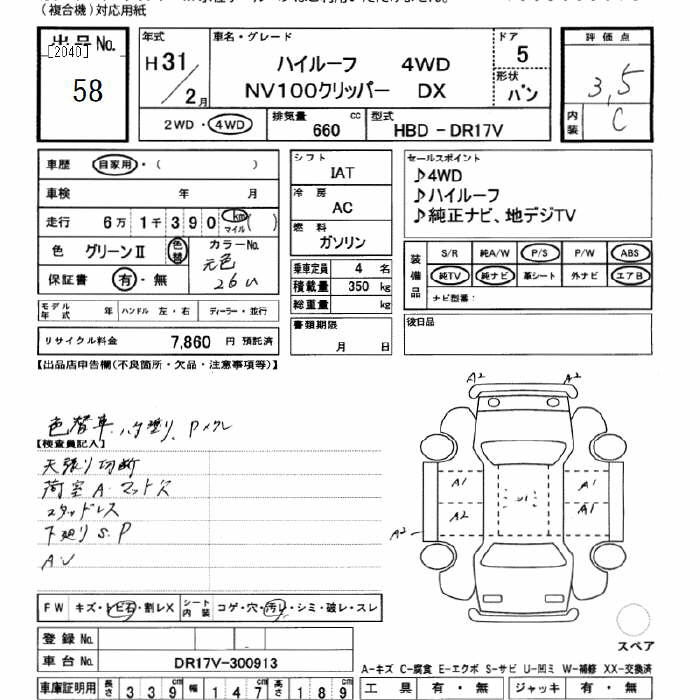 (複合機)対応用紙
出品No. [2040] 58
年式 H31/2月
車名・グレード ハイルーフ 4WD
NV100クリッパー DX
ドア 5
形状 バン
評価点 3.5
内装 C
2WD・4WD 排気量 660 cc 型式 HBD-DR17V
車歴 自家用・( )
車検 年 月
走行 6万1千390 km マイル ( )
色 グリーンⅡ 色替 カラーNo. 元色 26U
保証書 有・無
モデル年式 年 ハンドル 左・右 ディーラー・並行
リサイクル料金 7,860 円 預託済
シフト IAT
冷房 AC
燃料 ガソリン
乗車定員 4 名
積載量 350 kg
総重量 kg
書類期限 月 日
セールスポイント
♪4WD
♪ハイルーフ
♪純正ナビ、地デジTV
装備品 S/R 純A/W P/S P/W ABS
純TV 純ナビ 革シート 外ナビ エアB
ナビ型番:
後日品
【出品店申告欄(不良箇所・欠品・注意事項等)】
色替車.ハケ塗り.Pメクレ
【検査員記入】
天張り切断
荷室A.マットス
スタッドレス
下廻りS.P
AU
A2 A2
A1 A1
A2 A1
A2
U1
FW キズ・トビ石・割レX シート内装 コゲ・穴・汚レ・シミ・破レ・スレ
登録No.
車台No. DR17V-300913
スペア
A-キズ C-腐食 E-エクボ S-サビ U-凹ミ W-補修 XX-交換済
車庫証明用 長さ 339cm 幅 147cm 高さ 189cm
工具 有・無 ジャッキ 有・無